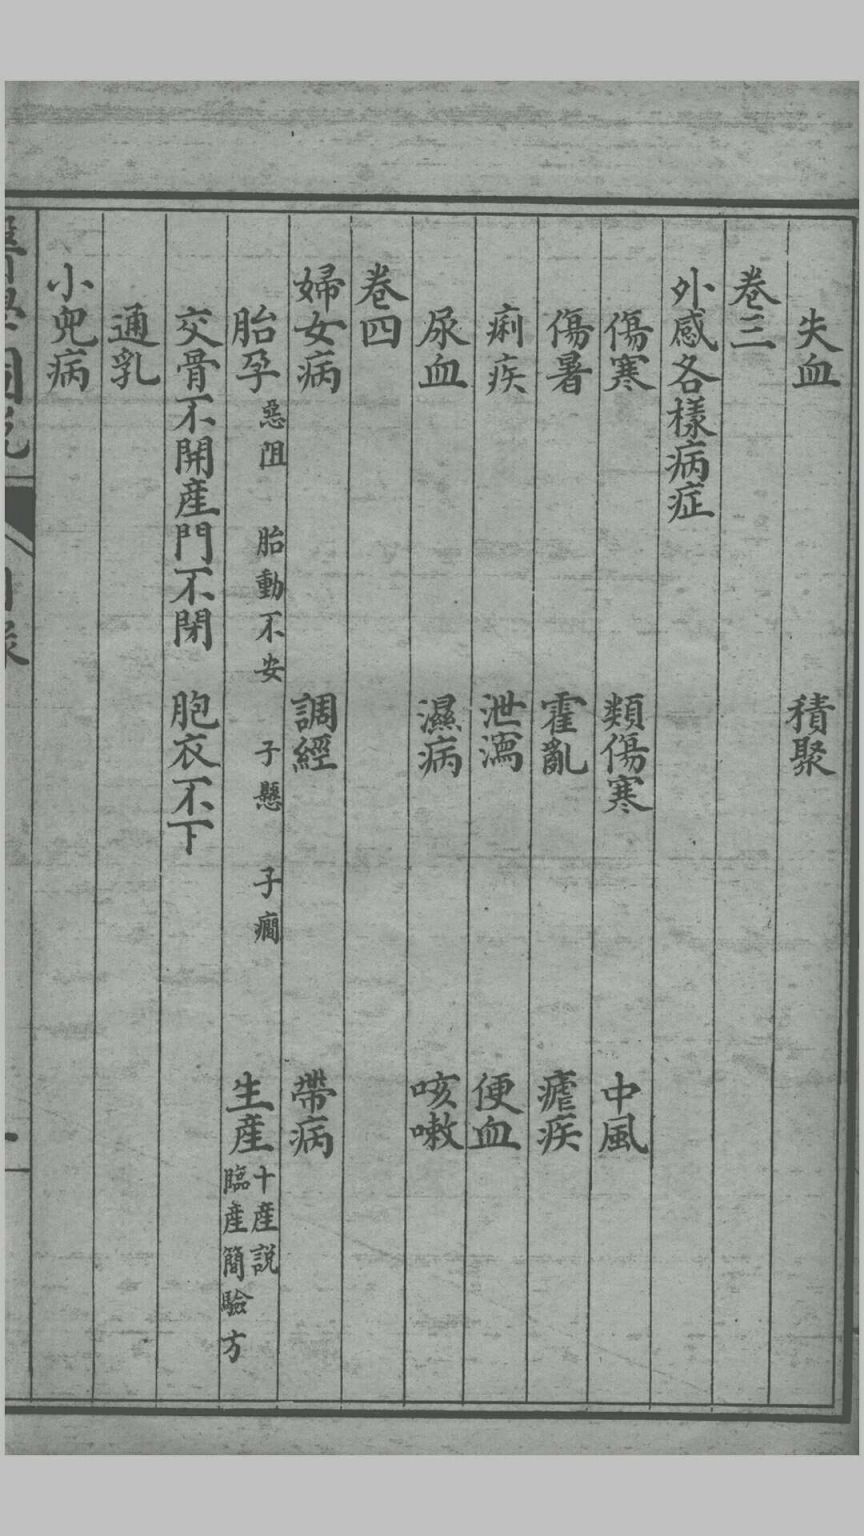 失血　積聚
卷三
外感各樣病症
傷寒　類傷寒　中風
傷暑　霍亂　瘧疾
痢疾　泄瀉　便血
尿血　濕病　咳嗽
卷四
婦女病　調經　帶病
胎孕　惡阻　胎動不安　子懸　子癇　生產　十產説　臨產簡驗方
交骨不開產門不閉　胞衣不下
通乳
小兒病